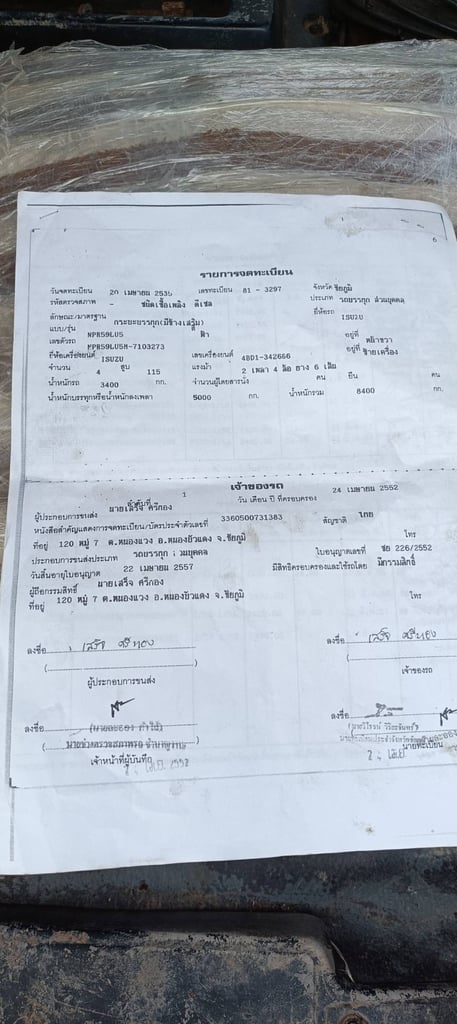 รายการจดทะเบียน
วันจดทะเบียน 20 เมษายน 2536 เลขทะเบียน 81 - 3297 จังหวัด ชัยภูมิ
รหัสตรวจสภาพ - ชนิดเชื้อเพลิง ดีเซล ประเภท รถบรรทุก ส่วนบุคคล
ลักษณะ/มาตรฐาน กระบะบรรทุก(มีข้างเสริม) ยี่ห้อรถ ISUZU
แบบ/รุ่น NPR59LU5 สี ฟ้า
เลขตัวรถ NPR59LU5H-7103273 อยู่ที่
ยี่ห้อเครื่องยนต์ ISUZU เลขเครื่องยนต์ 4BD1-342666 อยู่ที่ ซ้ายเครื่อง
จำนวน 4 สูบ 115 แรงม้า 2 เพลา 4 ล้อ ยาง 6 เส้น
น้ำหนักรถ 3400 กก. จำนวนผู้โดยสารนั่ง คน ยืน คน
น้ำหนักบรรทุกหรือน้ำหนักลงเพลา 5000 กก. น้ำหนักรวม 8400 กก.
เจ้าของรถ
ลำดับที่ 1 วัน เดือน ปี ที่ครอบครอง 24 เมษายน 2552
ผู้ประกอบการขนส่ง นายเสร็จ ศรีทอง
หนังสือสำคัญแสดงการจดทะเบียน/บัตรประจำตัวเลขที่ 3360500731383 สัญชาติ ไทย
ที่อยู่ 120 หมู่ 7 ต.หนองแวง อ.หนองบัวแดง จ.ชัยภูมิ โทร
ประกอบการขนส่งประเภท รถบรรทุก ส่วนบุคคล ใบอนุญาตเลขที่ ชย 226/2552
วันสิ้นอายุใบอนุญาต 22 เมษายน 2557 มีสิทธิครอบครองและใช้รถโดย มีกรรมสิทธิ์
ผู้ถือกรรมสิทธิ์ นายเสร็จ ศรีทอง
ที่อยู่ 120 หมู่ 7 ต.หนองแวง อ.หนองบัวแดง จ.ชัยภูมิ โทร
ลงชื่อ เสร็จ ศรีทอง ลงชื่อ เสร็จ ศรีทอง
ผู้ประกอบการขนส่ง เจ้าของรถ
ลงชื่อ ลงชื่อ
นายช่างตรวจสภาพรถ ชำนาญงาน
เจ้าหน้าที่ผู้บันทึก นายทะเบียน